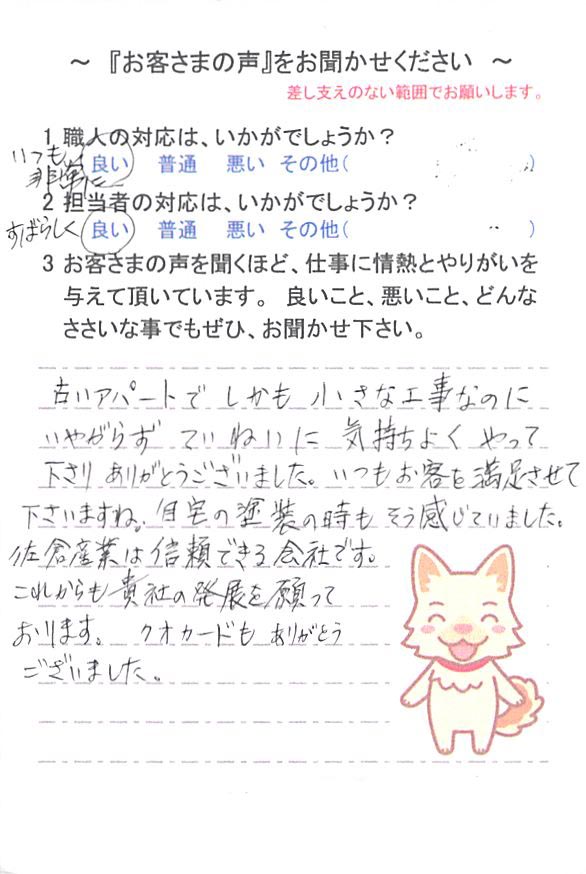 ～ 『お客さまの声』をお聞かせください ～
差し支えのない範囲でお願いします。
1 職人の対応は、いかがでしょうか？
いつも
非常に
良い 普通 悪い その他( )
2 担当者の対応は、いかがでしょうか？
すばらしく 良い 普通 悪い その他( )
3 お客さまの声を聞くほど、仕事に情熱とやりがいを
与えて頂いています。 良いこと、悪いこと、どんな
ささいな事でもぜひ、お聞かせ下さい。
古いアパートで しかも 小さな工事なのに
いやがらず ていねいに 気持ちよく やって
下さり ありがとうございました。いつもお客を満足させて
下さいますね。自宅の塗装の時も そう感じていました。
佐倉産業は信頼できる会社です。
これからも貴社の発展を願って
おります。 クオカードも ありがとう
ございました。